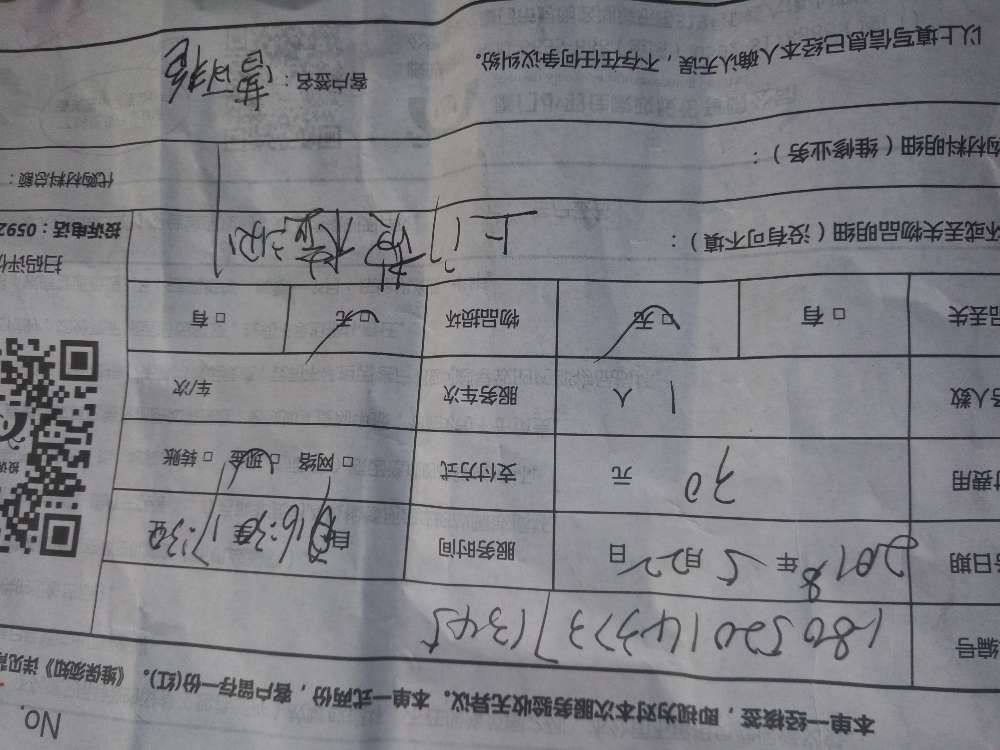 No.
本单一经核签，即视为对本次服务验收无异议。本单一式两份，客户留存一份(红)。《维保须知》详见
编号 180520143731345
日期 2018年5月22日 服务时间 自16:30至17:30至
费用 70 元 支付方式 □ 网络 □ 现金 □ 转账
人数 1 人 服务车次 车/次
品丢失 □ 有 □ 无 物品损坏 □ 无 □ 有
扫码评价
坏或丢失物品明细（没有可不填）：
投诉电话：0592
购材料明细（维修业务）：
代购材料总额：
以上填写信息已经本人确认无误，不存在任何争议纠纷。 客户签名：